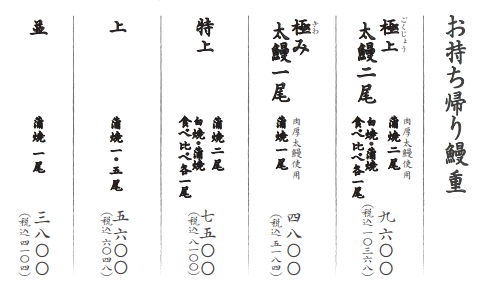 お持ち帰り鰻重
極上
ごくじょう
太鰻二尾
肉厚太鰻使用
蒲焼二尾
白焼・蒲焼
食べ比べ各一尾
九六〇〇
(税込一〇三六八)
極み
きわ
太鰻一尾
肉厚太鰻使用
蒲焼一尾
四八〇〇
(税込五一八四)
特上
蒲焼二尾
白焼・蒲焼
食べ比べ各一尾
七五〇〇
(税込八一〇〇)
上
蒲焼一・五尾
五六〇〇
(税込六〇四八)
並
蒲焼一尾
三八〇〇
(税込四一〇四)